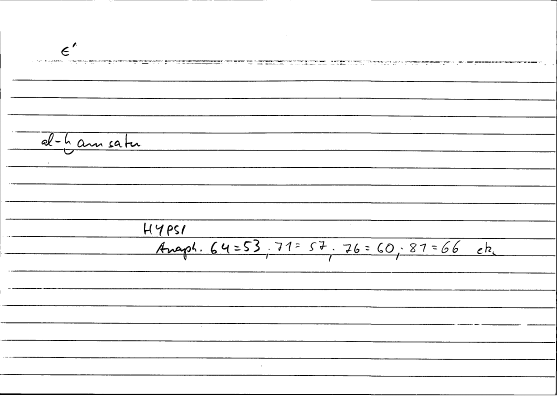 ε´
al-ḫamsatu
HYPSI
Anaph. 64=53, 71=57, 76=60, 81=66 etc.